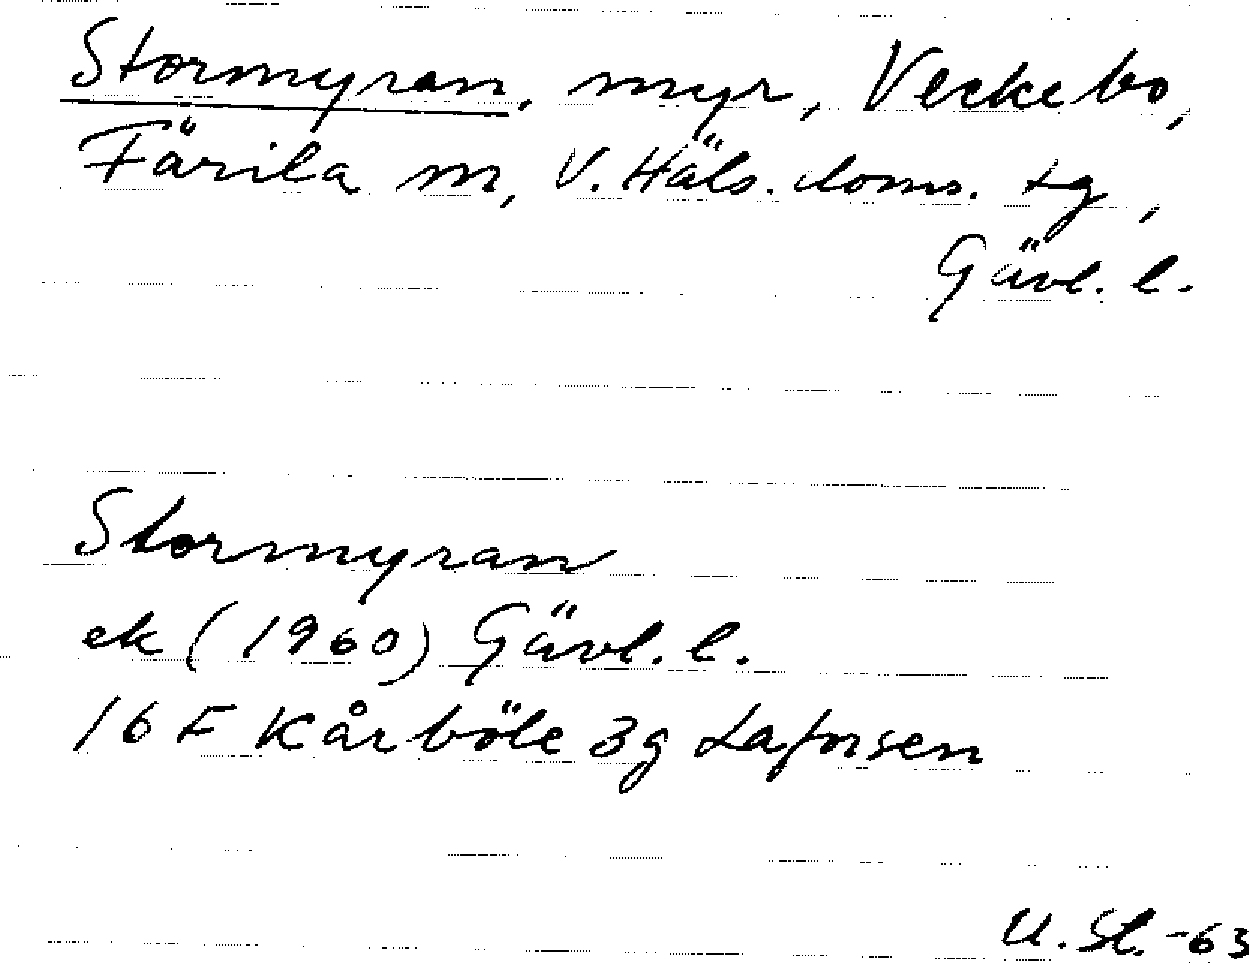 Stormyran, myr, Veckebo,
Färila sn, V. Häls. doms. tg,
Gävl. l.
Stormyran
ek (1960) Gävl. l.
16 F Kårböle 3g Laforsen
U. St. -63